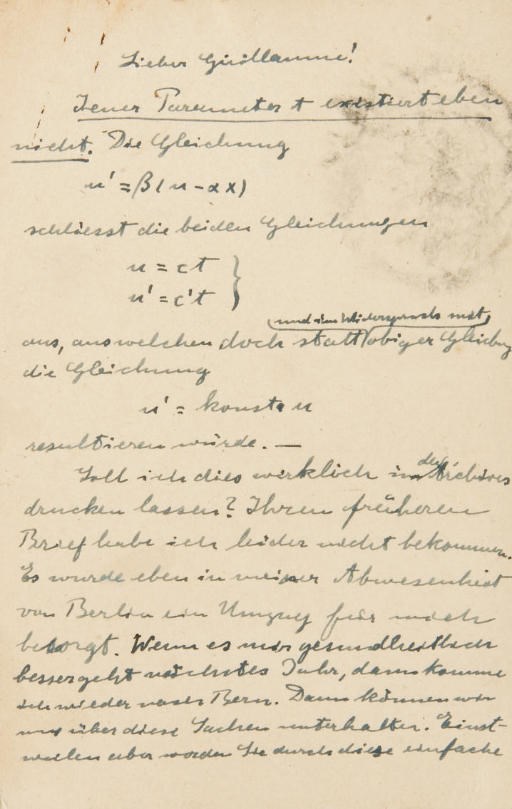 Lieber Guillaume!
Jener Parameter t existiert eben
nicht. Die Gleichung
u' = β(u - αx)
schliesst die beiden Gleichungen
u = ct }
u' = c't }
und im Widerspruch mit
aus, aus welchen doch statt obiger Gleichung
die Gleichung
u' = konst. u
resultieren würde. —
Soll ich dies wirklich in den Archives
drucken lassen? Ihren früheren
Brief habe ich leider nicht bekommen.
Es wurde eben in meiner Abwesenheit
von Berlin ein Umzug für mich
besorgt. Wenn es mir gesundheitlich
besser geht nächstes Jahr, dann komme
ich wieder nach Bern. Dann können wir
uns über diese Sachen unterhalten. Einst-
weilen aber werden Sie durch diese einfache